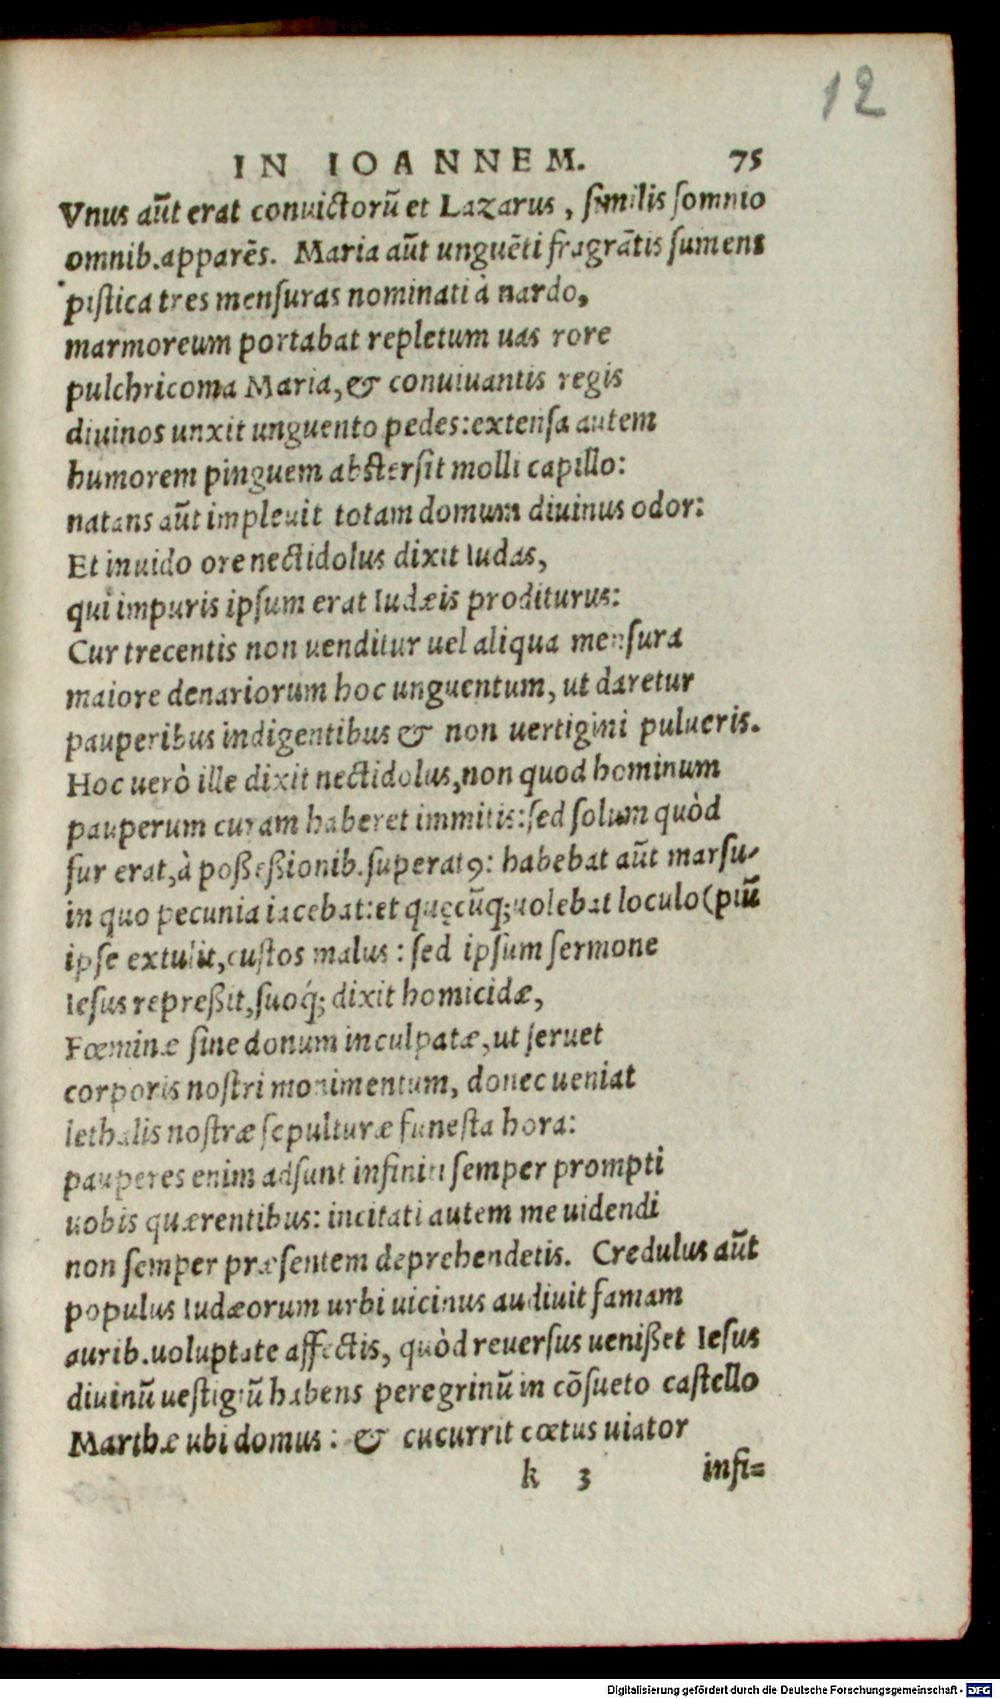 12
IN IOANNEM. 75
Vnus aũt erat conuictorũ et Lazarus, ſimilis ſomnio
omnib. apparẽs. Maria aũt unguẽti fragrãtis ſumens
piſtica tres menſuras nominati à nardo,
marmoreum portabat repletum uas rore
pulchricoma Maria, & conuiuantis regis
diuinos unxit unguento pedes: extenſa autem
humorem pinguem abſterſit molli capillo:
natans aũt impleuit totam domum diuinus odor:
Et inuido ore nectidolus dixit Iudas,
qui impuris ipſum erat Iudæis proditurus:
Cur trecentis non uenditur uel aliqua menſura
maiore denariorum hoc unguentum, ut daretur
pauperibus indigentibus & non uertigini pulueris.
Hoc uerò ille dixit nectidolus, non quod hominum
pauperum curam haberet immitis: ſed ſolum quòd
fur erat, à poßeßionib. ſuperatꝰ: habebat aũt marſu-
in quo pecunia iacebat: et quęcũq; uolebat loculo (piũ
ipſe extulit, cuſtos malus: ſed ipſum ſermone
Ieſus repreßit, ſuoq́; dixit homicidæ,
Fœminæ ſine donum inculpatæ, ut ſeruet
corporis noſtri monimentum, donec ueniat
lethalis noſtræ ſepulturæ funeſta hora:
pauperes enim adſunt infiniti ſemper prompti
uobis quærentibus: incitati autem me uidendi
non ſemper præſentem deprehendetis. Credulus aũt
populus Iudæorum urbi uicinus audiuit famam
aurib. uoluptate affectis, quòd reuerſus uenißet Ieſus
diuinũ ueſtigiũ habens peregrinũ in cõſueto caſtello
Marthæ ubi domus: & cucurrit cœtus uiator
k 3 infi=
Digitalisierung gefördert durch die Deutsche Forschungsgemeinschaft - DFG